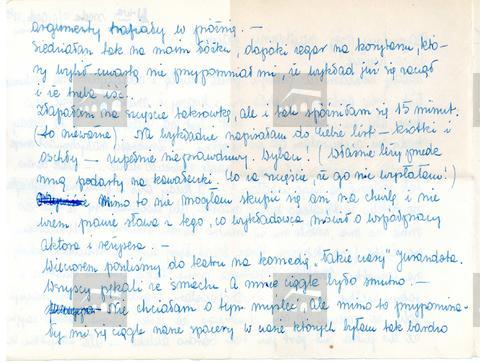 argumenty trafiały w próżnię. —
Siedziałam tak na moim łóżku, dopóki zegar na korytarzu, któ-
ry wybił czwartą nie przypomniał mi, że wykład już się zaczął
i że trzeba iść.
Złapałam na mieście taksówkę, ale i tak spóźniłam się 15 minut.
(to nieważne) Na wykładzie napisałam do Ciebie list – krótki i
oschły – zupełnie nieprawdziwy. Wybacz! (Właśnie leży przede
mną podarty na kawałeczki. Co za szczęście, że go nie wysłałam!)
Mimo to nie mogłam skupić się ani na chwilę i nie
wiem prawie słowa z tego, co wykładowca mówił o współpracy
aktora i reżysera. –
Wieczorem poszliśmy do teatru na komedię „Takie czasy" Jurandota.
Wszyscy pękali ze śmiechu. A mnie ciągle było smutno. –
Nie chciałam o tym myśleć. Ale mimo to przypomina-
ły mi się ciągle nasze spacery w czasie których byłam tak bardzo